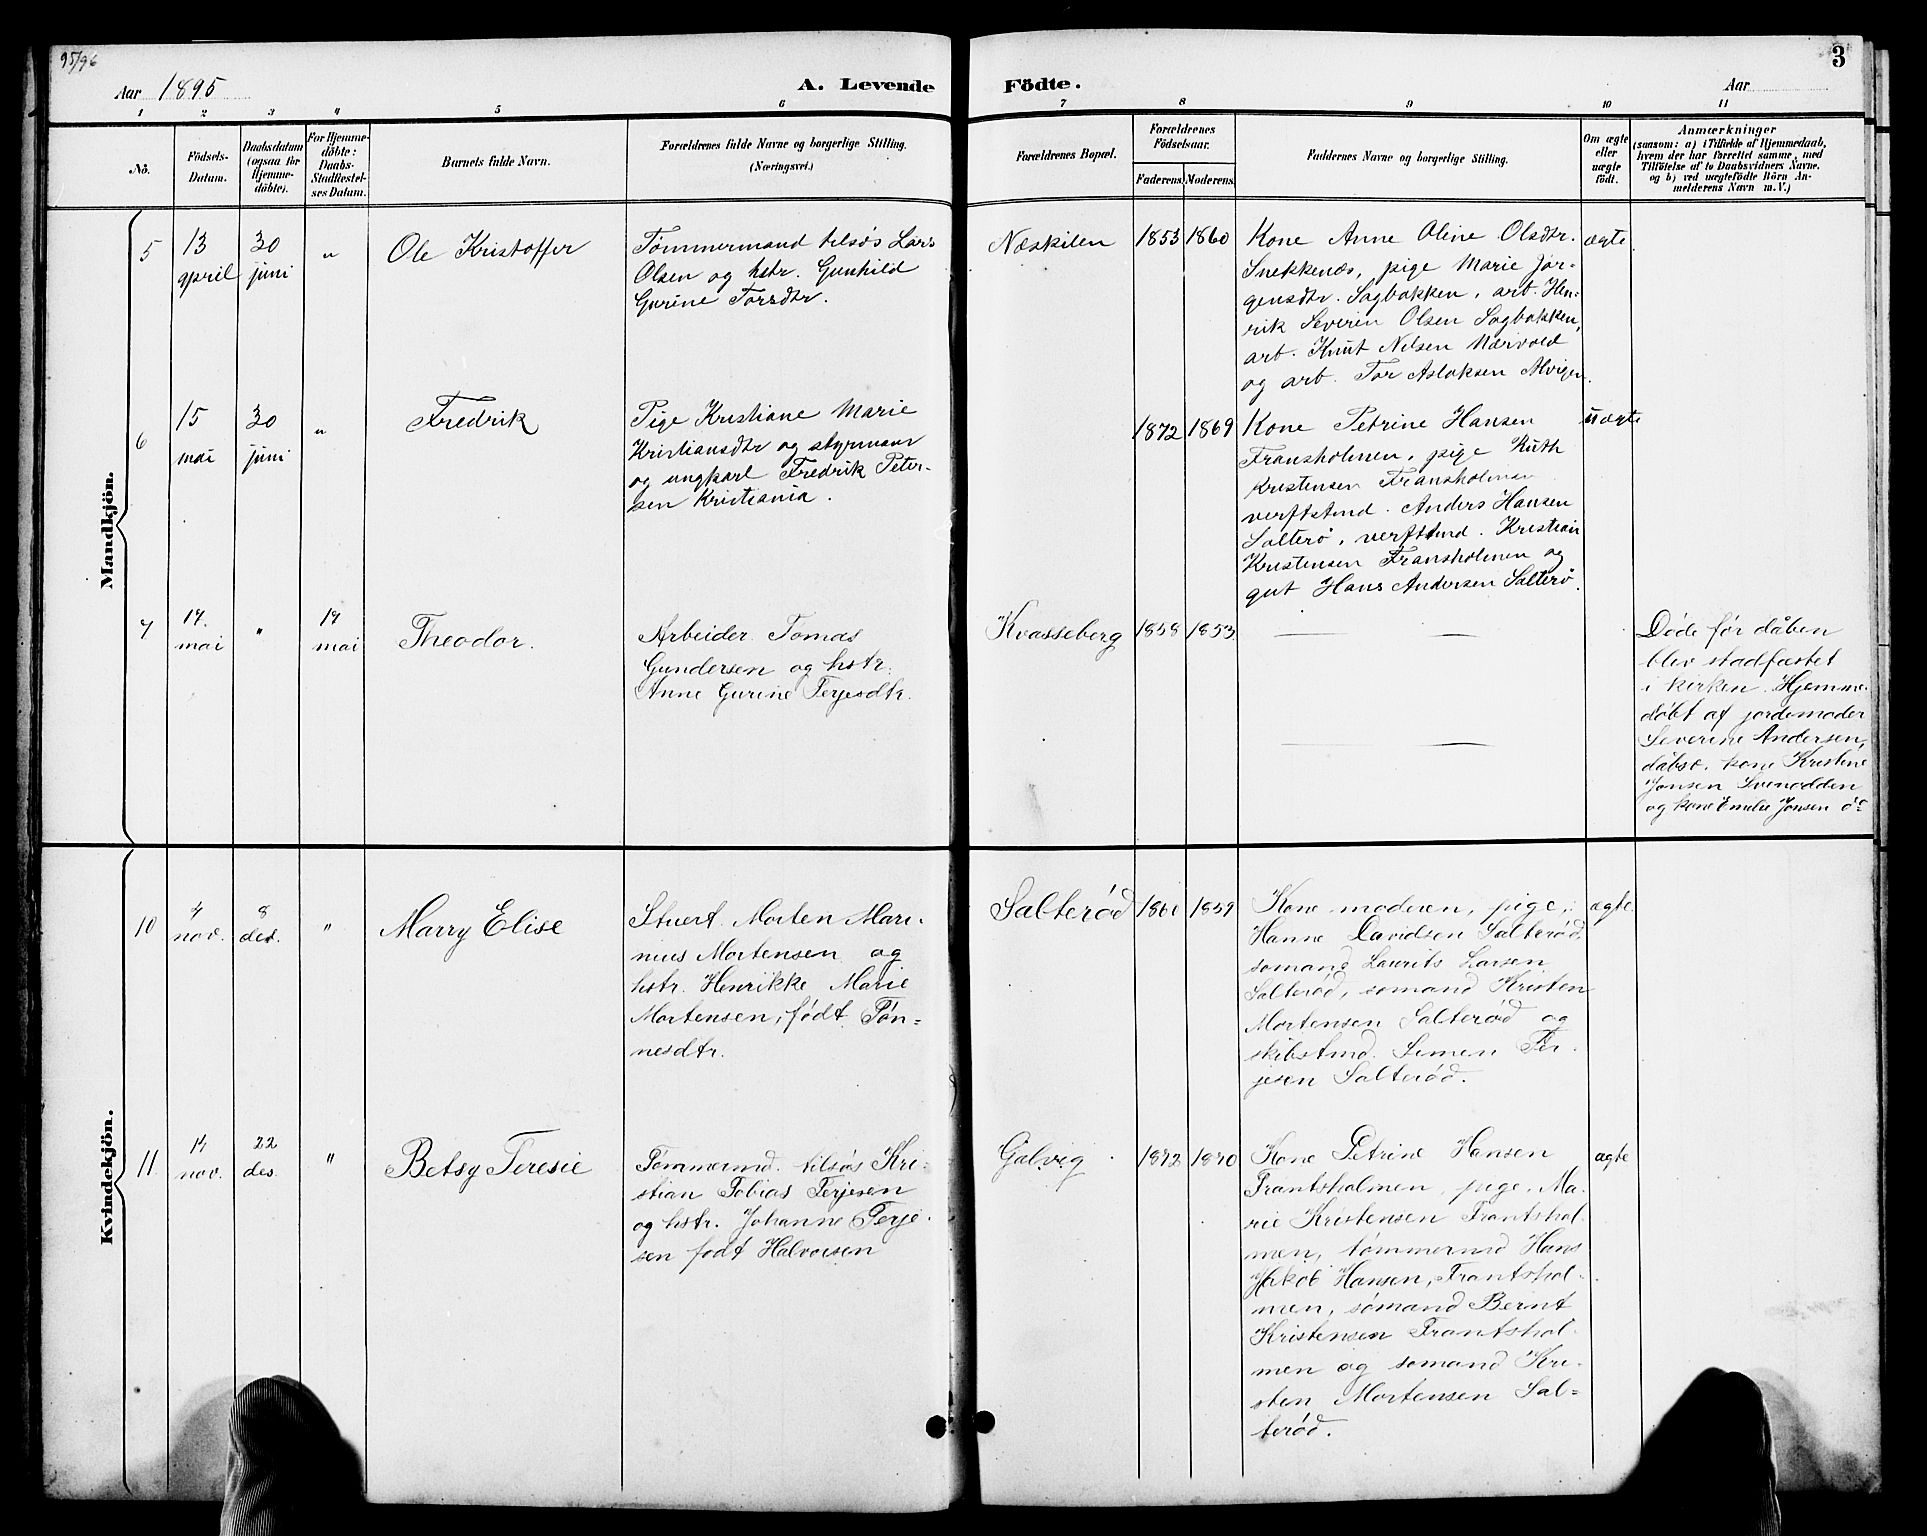 95/96
3
Aar 1895
A. Levende
Födte.
Aar
1
2
3
4
5
6
7
8
9
10
11
No.
Födsels-
Datum.
Daabsdatum
(ogsaa for
Hjemme-
döbte).
For Hjemme-
döbte:
Daabs-
Stadfæstel-
ses Datum.
Barnets fulde Navn.
Forældrenes fulde Navne og borgerlige Stilling.
(Næringsvei.)
Forældrenes Bopæl.
Forældrenes
Födselsaar.
Faderens.
Moderens.
Faddernes Navne og borgerlige Stilling.
Om ægte
eller
uægte
födt.
Anmærkninger
(saasom: a) i Tilfælde af Hjemmedaab,
hvem der har forrettet samme, med
Tilföielse af to Daabsvidners Navne.
og b) ved uægtefödte Börn An-
melderens Navn m. V.)
Mandkjön.
5
13
april
30
juni
"
Ole Kristoffer
Tømmermand tilsøs Lars
Olsen og hstr. Gunhild
Gurine Torsdtr.
Næskilen
1853
1860
Kone Anne Oline Olsdtr.
Snekkenæs, pige Marie Jør-
gensdtr. Sagbakken, arb. Hen-
rik Severin Olsen Sagbakken,
arb. Knut Nilsen Narvold
og arb. Tor Aslaksen
ægte
6
15
mai
30
juni
"
Fredrik
Pige Kristiane Marie
Kristiansdtr og styrmann
og ungkarl Fredrik Peter-
sen Kristiania.
1872
1869
Kone Petrine Hansen
Fransholmen, pige Ruth
Kristensen Fransholmen
verftstmd. Anders Hansen
Salterø, verftstmd. Kristian
Kristensen Fransholmen og
gut Hans Andersen Salterø.
uægte
7
19.
mai
"
19
mai
Theodor.
Arbeider Tomas
Gundersen og hstr.
Anne Gurine Terjesdtr.
Kvasseberg
1858
1853
Døde før dåben
blev stadfæstet
i kirken. Hjemme-
døbt af jordemoder
Severine Andersen,
dåbsv. kone Kristine
Jonsen Svenodden
og kone Emelie Jonsen
Kvindekjön.
10
4
nov.
8
des.
"
Marry Elise
Stuert Morten Mari-
nius Mortensen og
hstr. Henrikke Marie
Mortensen, født Tøn-
nesdtr.
Salterød
1860
1859
Kone moderen, pige
Hanne Davidsen Salterød,
sømand Laurits Larsen
Salterød, sømand Kristen
Mortensen Salterød og
skibstmd. Simen Ter-
jesen Salterød.
ægte
11
14
nov.
22
des.
"
Betsy Teresie
Tømmermd. tilsøs Kri-
stian Tobias Terjesen
og hstr. Johanne Terje-
sen født Halvorsen
Galvig
1872
1870
Kone Petrine Hansen
Frantsholmen, pige Ma-
rie Kristensen Frantshol-
men, tømmermd Hans
Jakob Hansen, Frantshol-
men, sømand Bernt
Kristensen Frantshol-
men og sømand Kri-
sten Mortensen Sal-
terød.
ægte